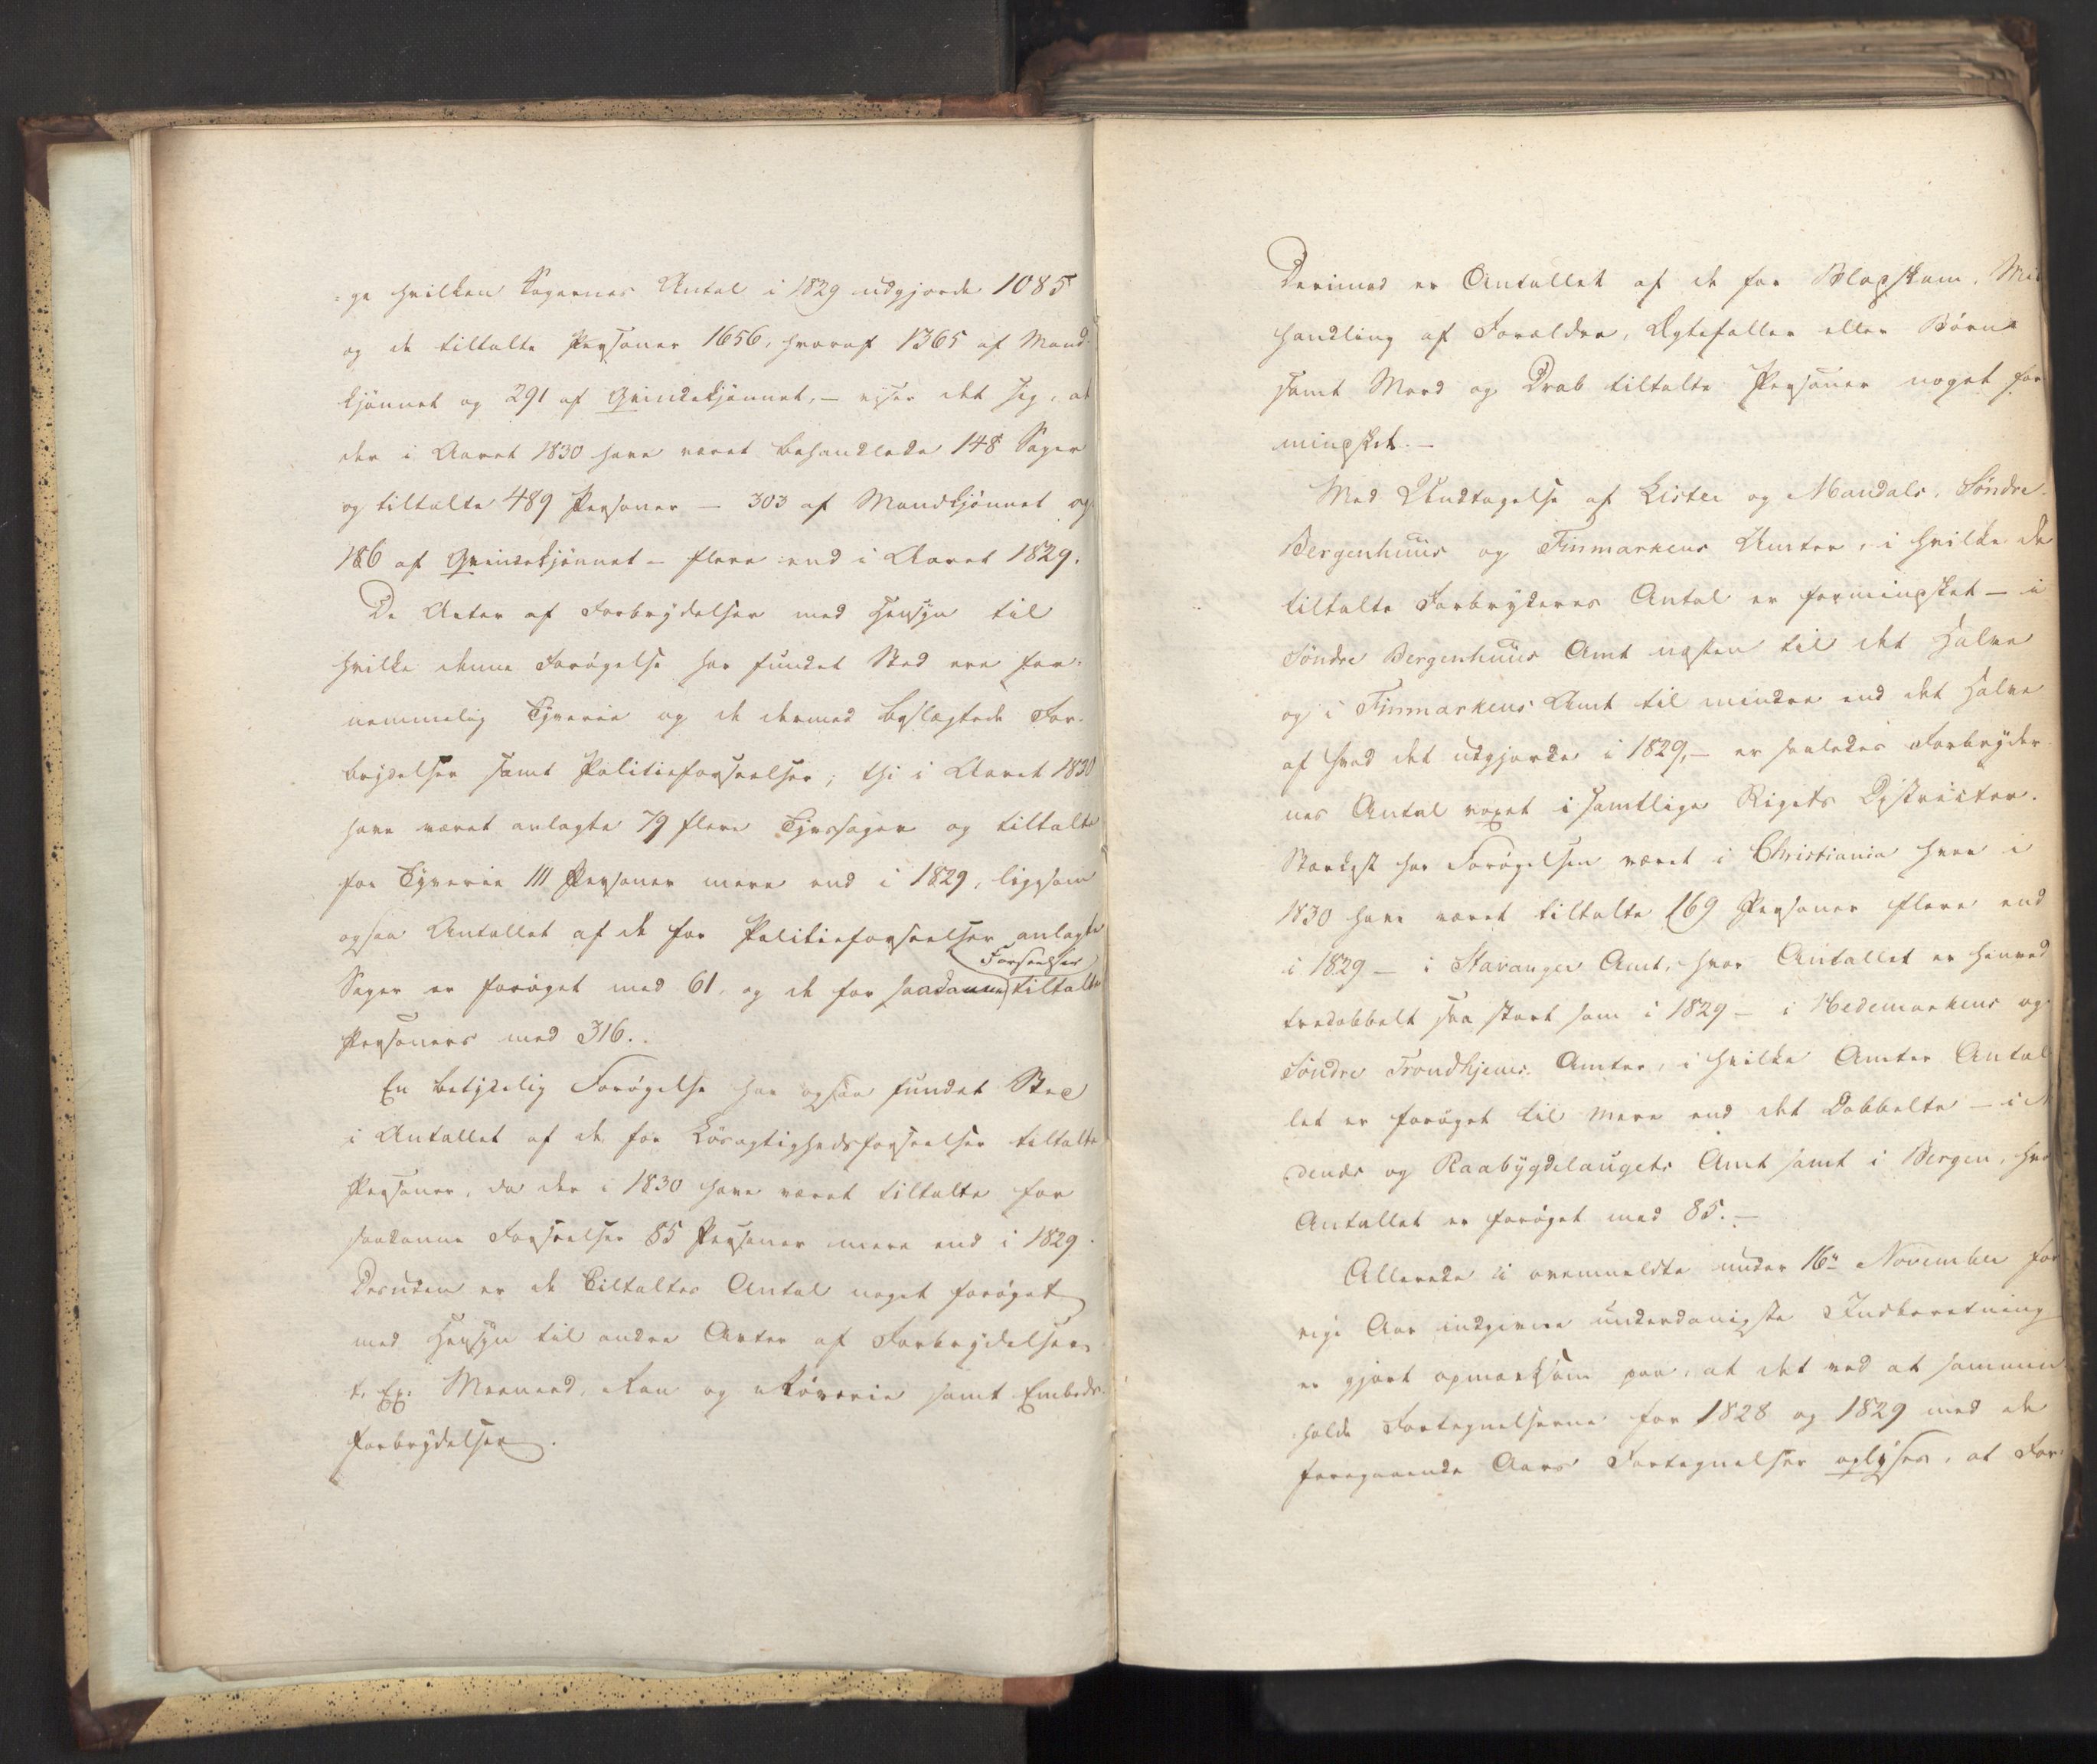 =ge hvilken Sagernes Antal i 1829 udgjorde 1085
og de tiltalte Personer 1656, hvoraf 1365 af Mand-
kjönnet og 291 af Qvindekjönnet, – viser det sig, at
der i Aaret 1830 have været behandlede 148 Sager
og tiltalte 489 Personer – 303 af Mandkjönnet og
186 af Qvindekjönnet – flere end i Aaret 1829.
De Arter af Forbrydelser med Hensyn til
hvilke denne Forögelse har fundet Sted ere for-
nemmelig Tyverie og de dermed beslægtede For-
brydelser samt Politieforseelser; thi i Aaret 1830
have været anlagte 79 flere Tyvssager og tiltalte
for Tyverie 111 Personer mere end i 1829, ligesom
ogsaa Antallet af de for Politieforseelser anlagte
Sager er foröget med 61, og de for saadanne Forseelser tiltalte
Personers med 316.
En betydelig Forögelse har ogsaa fundet Sted
i Antallet af de for Lösagtighedsforseelser tiltalte
Personer, da der i 1830 have været tiltalte for
saadanne Forseelser 85 Personer mere end i 1829.
Desuden er de Tiltaltes Antal noget foröget
med Hensyn til andre Arter af Forbrydelser,
t. Ex: Meeneed, Ran og Röverie samt Embeds-
forbrydelser.
Derimod er Antallet af de for Blodskam, Mis
handling af Forældre, Ægtefæller eller Börn
samt Mord og Drab tiltalte Personer noget for
mindsket. –
Med Undtagelse af Lister og Mandals, Söndre-
Bergenhuus og Finmarkens Amter, i hvilke de
tiltalte Forbryderes Antal er formindsket – i
Söndre Bergenhuus Amt næsten til det Halve
og i Finmarkens Amt til mindre end det Halve
af hvad det udgjorde i 1829, – er saaledes Forbryder
nes Antal voxet i samtlige Rigets Districter.
Stærkest har Forögelsen været i Christiania hvor i
1830 have været tiltalte 169 Personer flere end
i 1829 – i Stavanger Amt, hvor Antallet er henved
tredobbelt saa stort som i 1829 – i Hedemarkens og
Söndre Trondhjems Amter, i hvilke Amter Antal
let er foröget til mere end det Dobbelte – i
denæs og Raabygdelaugets Amt samt i Bergen, hvor
Antallet er foröget med 85. –
Allerede i ovenmeldte under 16de November for
rige Aar indgivne underdanigste Indberetning
er gjort opmærksom paa, at det ved at sammen
holde Fortegnelserne for 1828 og 1829 med de
foregaaende Aars Fortegnelser oplyses, at For-